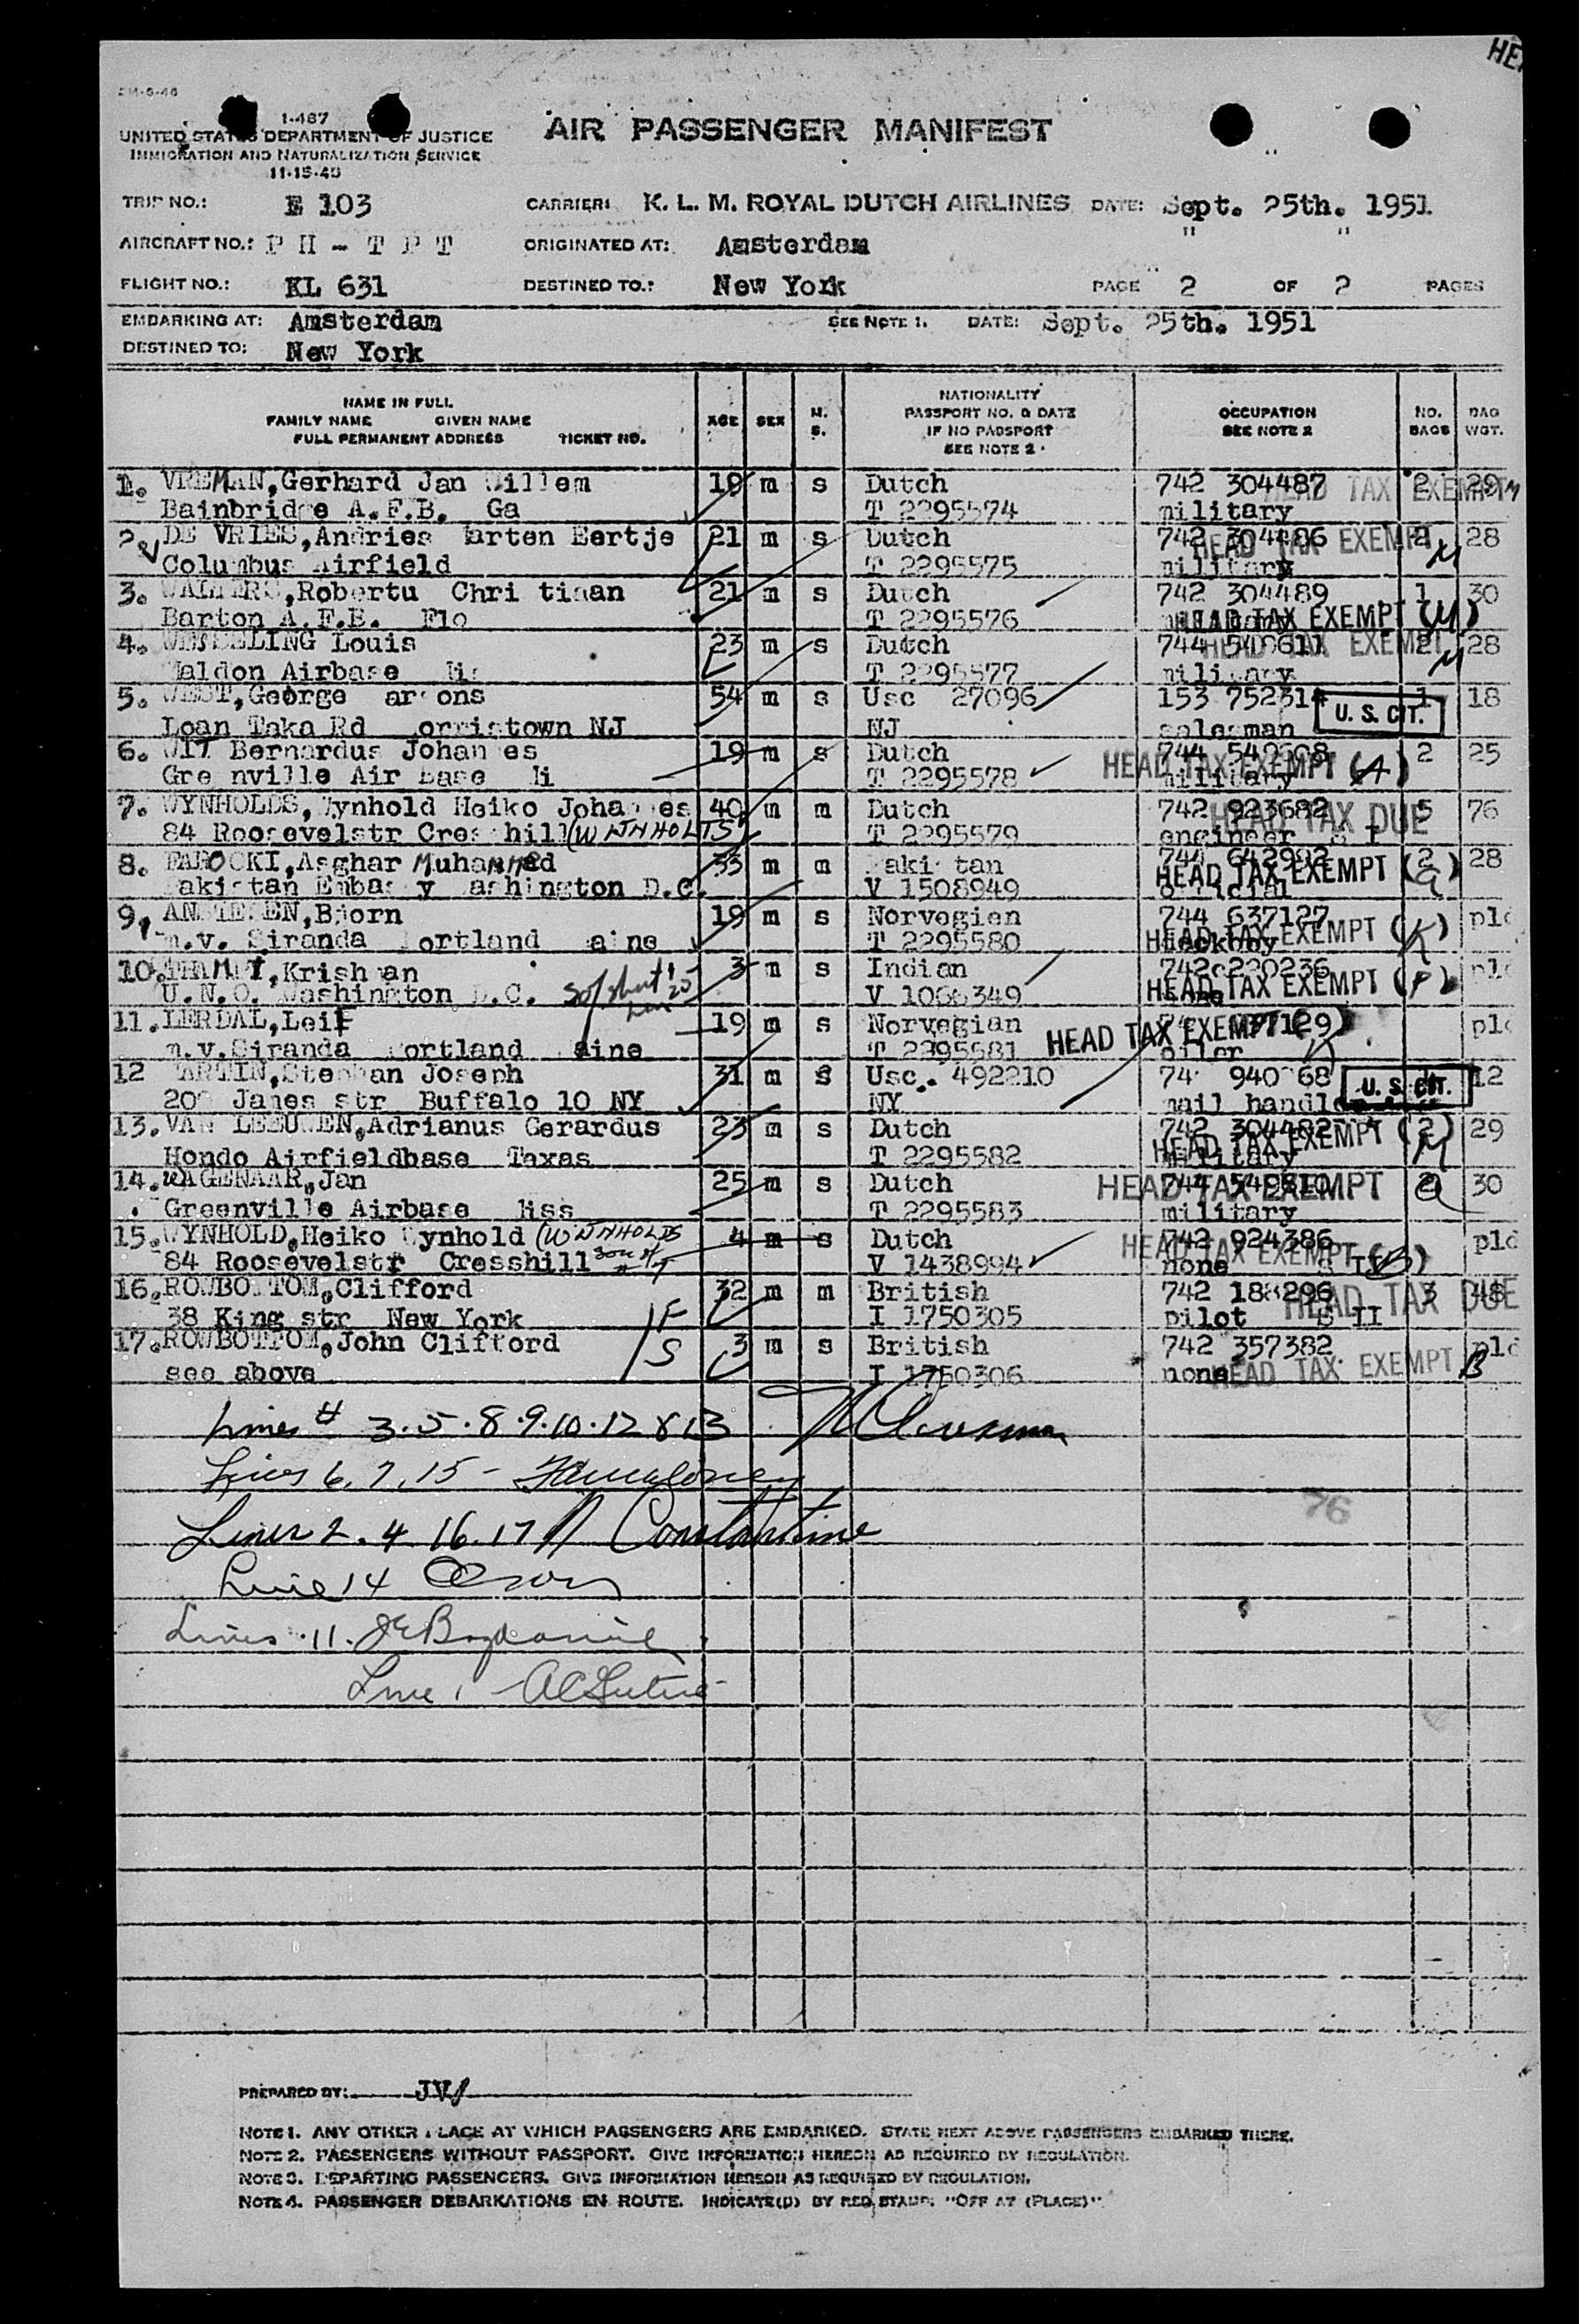 HE
1-487
UNITED STATES DEPARTMENT OF JUSTICE
IMMIGRATION AND NATURALIZATION SERVICE
11-15-45
AIR PASSENGER MANIFEST
TRIP NO.: E 103 CARRIER: K. L. M. ROYAL DUTCH AIRLINES DATE: Sept. 25th. 1951
AIRCRAFT NO.: P H - T P T ORIGINATED AT: Amsterdam " "
FLIGHT NO.: KL 631 DESTINED TO.: New York PAGE 2 OF 2 PAGES
EMBARKING AT: Amsterdam SEE NOTE 1. DATE: Sept. 25th. 1951
DESTINED TO: New York
NAME IN FULL
FAMILY NAME GIVEN NAME
FULL PERMANENT ADDRESS TICKET NO.
AGE SEX M. S.
NATIONALITY
PASSPORT NO. & DATE
IF NO PASSPORT
SEE NOTE 2.
OCCUPATION
SEE NOTE 2
NO. BAGS
BAG WGT.
1. VREMAN, Gerhard Jan Willem 19 m s Dutch 742 304487 2 29
Bainbridge A.F.B. Ga T 2295574 military HEAD TAX EXEMPT M
2. DE VRIES, Andries arten Eertje 21 m s Dutch 742 304486 2 28
Columbus Airfield T 2295575 military HEAD TAX EXEMPT M
3. WALTERS, Robertu Chri tiaan 21 m s Dutch 742 304489 1 30
Barton A.F.B. Flo T 2295576 HEAD TAX EXEMPT (M)
4. WESSELING Louis 23 m s Dutch 744 540611 2 28
aldon Airbase T 2295577 military HEAD TAX EXEMPT M
5. WEST, George arsons 54 m s Usc 27096 153 752314 1 18
Loan Taka Rd orristown NJ NJ salesman U. S. CIT.
6. WIT Bernardus Johan es 19 m s Dutch 744 540608 2 25
Gre nville Air base Mi T 2295578 military HEAD TAX EXEMPT (A)
7. WYNHOLDS, Wynhold Heiko Johannes 40 m m Dutch 742 923682 5 76
84 Roosevelstr Cresshill (WIJNHOLTS) T 2295579 engineer S I HEAD TAX DUE
8. FAROOKI, Asghar Muhammed 33 m m Pakistan 744 642992 2 28
Pakistan Embassy Washington D.C. V 1508949 official HEAD TAX EXEMPT (G)
9. AN TENSEN, Bjorn 19 m s Norvegien 744 637127 pld
m.v. Siranda Portland Maine T 2295580 deckboy HEAD TAX EXEMPT (K)
10. Krishnan 3 m s Indian 742 220236 pld
U.N.O. Washington D.C. V 1066349 none HEAD TAX EXEMPT (P)
11. LERDAL, Leif 19 m s Norvegian 7129 pld
m.v. Siranda Portland Maine T 2295581 oiler HEAD TAX EXEMPT
12 MARTIN, Stephan Joseph 31 m s Usc. 492210 74 940 68 12
20 James str Buffalo 10 NY NY mail handler U. S. CIT.
13. VAN LEEUWEN, Adrianus Gerardus 23 m s Dutch 742 304482 2 29
Hondo Airfieldbase Texas T 2295582 military HEAD TAX EXEMPT (M)
14. WAGENAAR, Jan 25 m s Dutch 744 540610 2 30
Greenville Airbase Miss T 2295583 military HEAD TAX EXEMPT
15. WYNHOLD, Heiko Wynhold (WIJNHOLDS 4 m s Dutch 742 924386 pld
84 Roosevelstr Cresshill son of # 7 V 1438994 none HEAD TAX EXEMPT (B)
16. ROWBOTTOM, Clifford 32 m m British 742 188296 3 48
38 King str New York F I 1750305 pilot S II HEAD TAX DUE
17. ROWBOTTOM, John Clifford S 3 m s British 742 357382 pld
see above I 1750306 none HEAD TAX EXEMPT B
Lines # 3.5.8.9.10.12 & 13
Lines 6, 7, 15 -
Lines 2. 4 16. 17 Constantine
Line 14
Lines 11.
Line 1
76
PREPARED BY: JV/
NOTE 1. ANY OTHER PLACE AT WHICH PASSENGERS ARE EMBARKED. STATE NEXT ABOVE PASSENGERS EMBARKED THERE.
NOTE 2. PASSENGERS WITHOUT PASSPORT. GIVE INFORMATION HEREON AS REQUIRED BY REGULATION.
NOTE 3. DEPARTING PASSENGERS. GIVE INFORMATION HEREON AS REQUIRED BY REGULATION.
NOTE 4. PASSENGER DEBARKATIONS EN ROUTE. INDICATE(D) BY RED STAMP: "OFF AT (PLACE)"